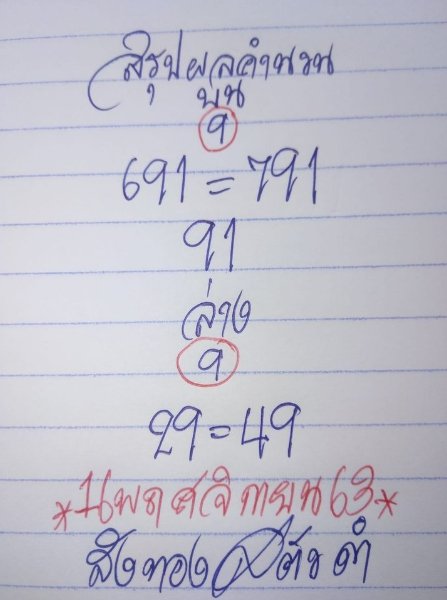 สรุปผลคำนวน
บน
9
691 = 791
91
ล่าง
9
29 = 49
*1 พฤศจิกายน 63*
สังทอง